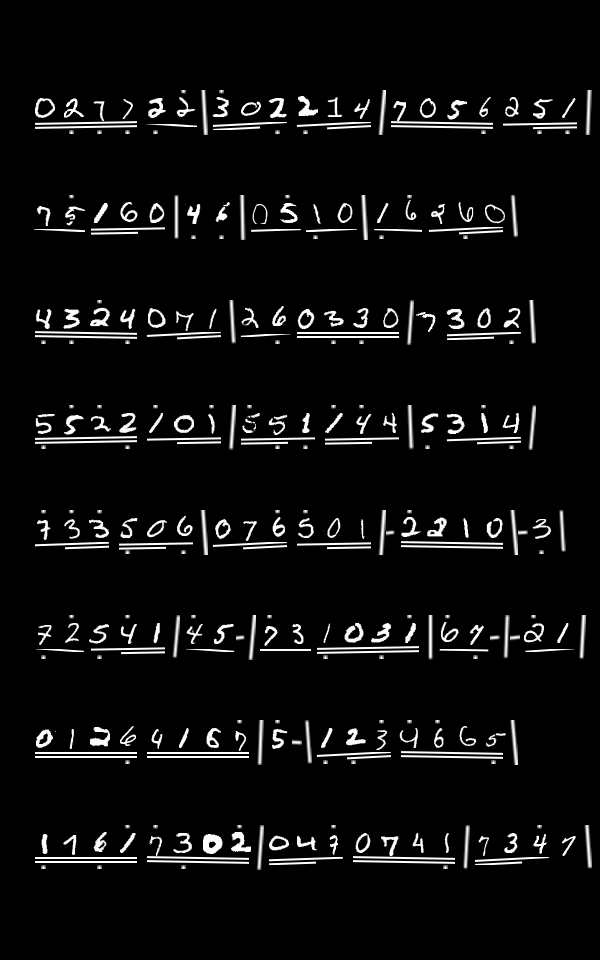 0277 22|302 214|7056 251|
75 160|46|05 10|16 260|
4324 071|26 0330|7302|
5522 101|551 144|5314|
733 506|076 501|-2210|-3|
72 541|45-|73 1031|67-|-21|
0126 4167|5-|123 4665|
1161 7302|047 0741|7347|